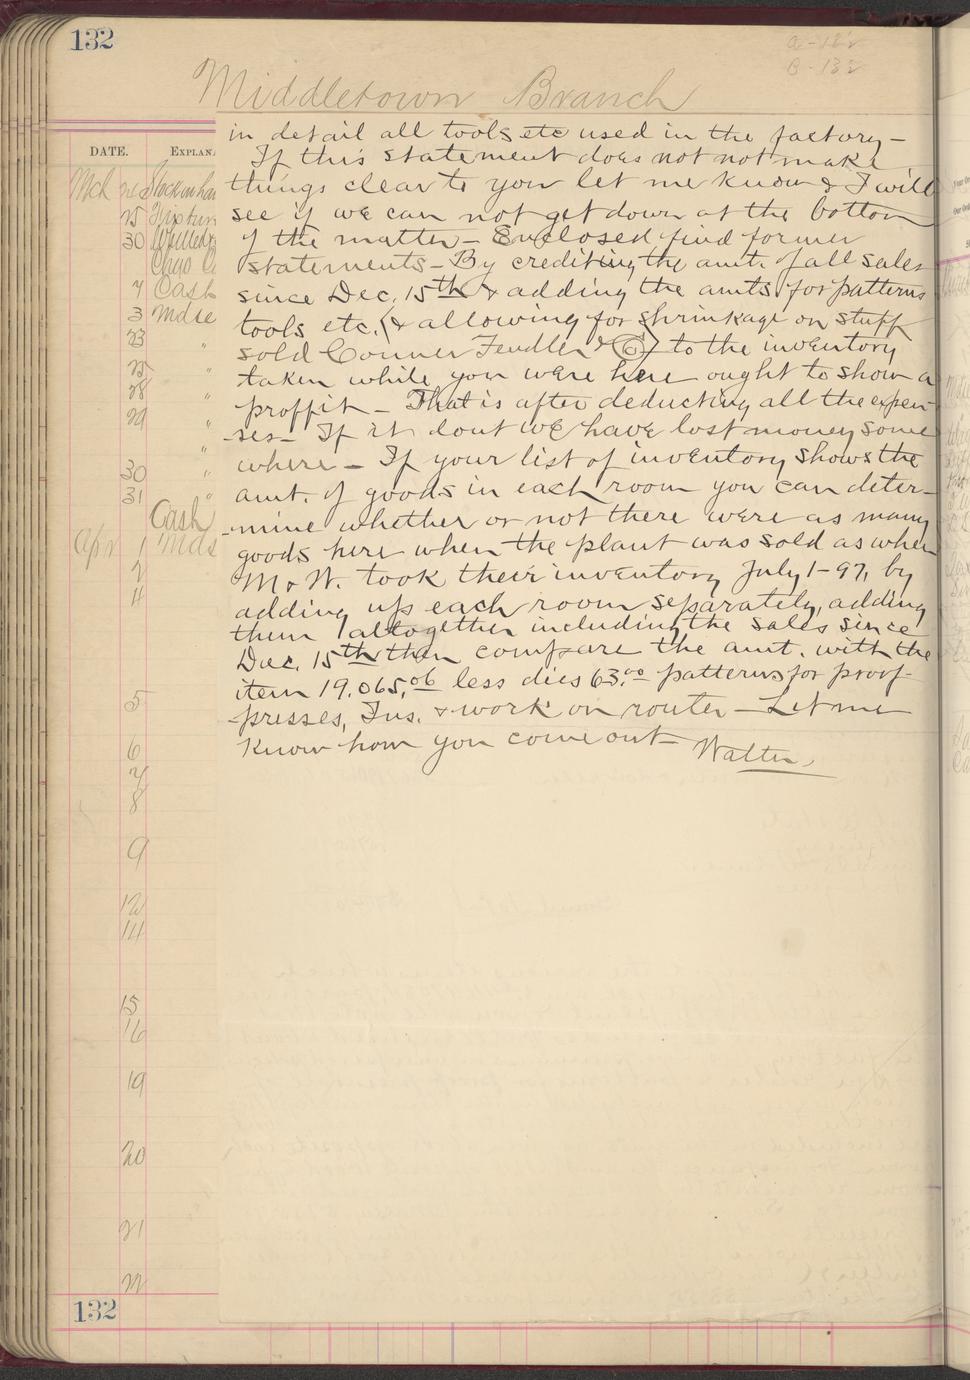 132
Middletown Branch
DATE.
in detail all tools etc used in the factory –
If this statement does not not make
things clear to you let me know & I will
see if we can not get down at the bottom
of the matter – Enclosed find former
statements – By crediting the amt. of all sales
since Dec. 15th & adding the amts for patterns
tools etc. (& allowing for shrinkage on stuff
sold Conner Fendler & Co) to the inventory
taken while you were here ought to show a
proffit – That is after deducting all the expen-
ses – If it dont we have lost money some
where – If your list of inventory shows the
amt. of goods in each room you can deter-
mine whether or not there were as many
goods here when the plant was sold as when
M & W. took their inventory July 1-97, by
adding up each room separately, adding
them altogether including the sales since
Dec. 15th then compare the amt. with the
item 19.065,06 less dies 63.00 patterns for proof
presses, Ins. & work on router – Let me
know how you come out – Walter
Mch
25
30
Cash
3 Mdse
23
25
28
29
30
31
Cash
Apr 1 Mds
2
4
5
6
7
8
9
12
14
15
16
19
20
21
22
132